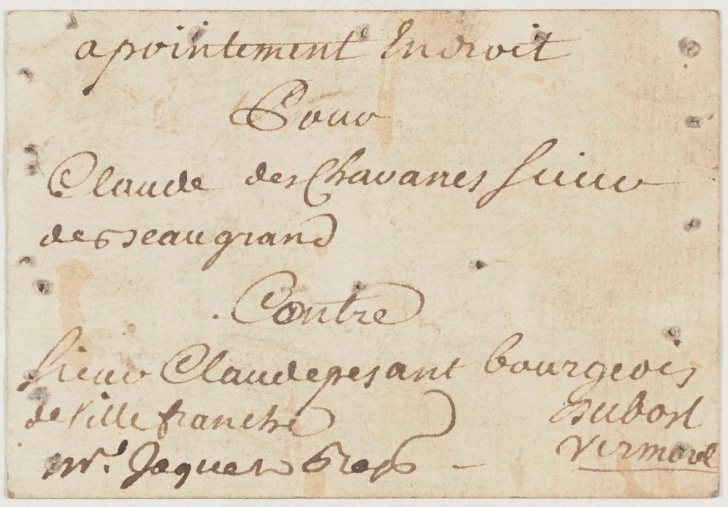 apointement Endroit
Pour
Claude des Chavanes sieur
de beaugrand
Contre
sieur Claude pesant bourgeois
de Villefranche Dubost
Mr. Jaquet Vermorel